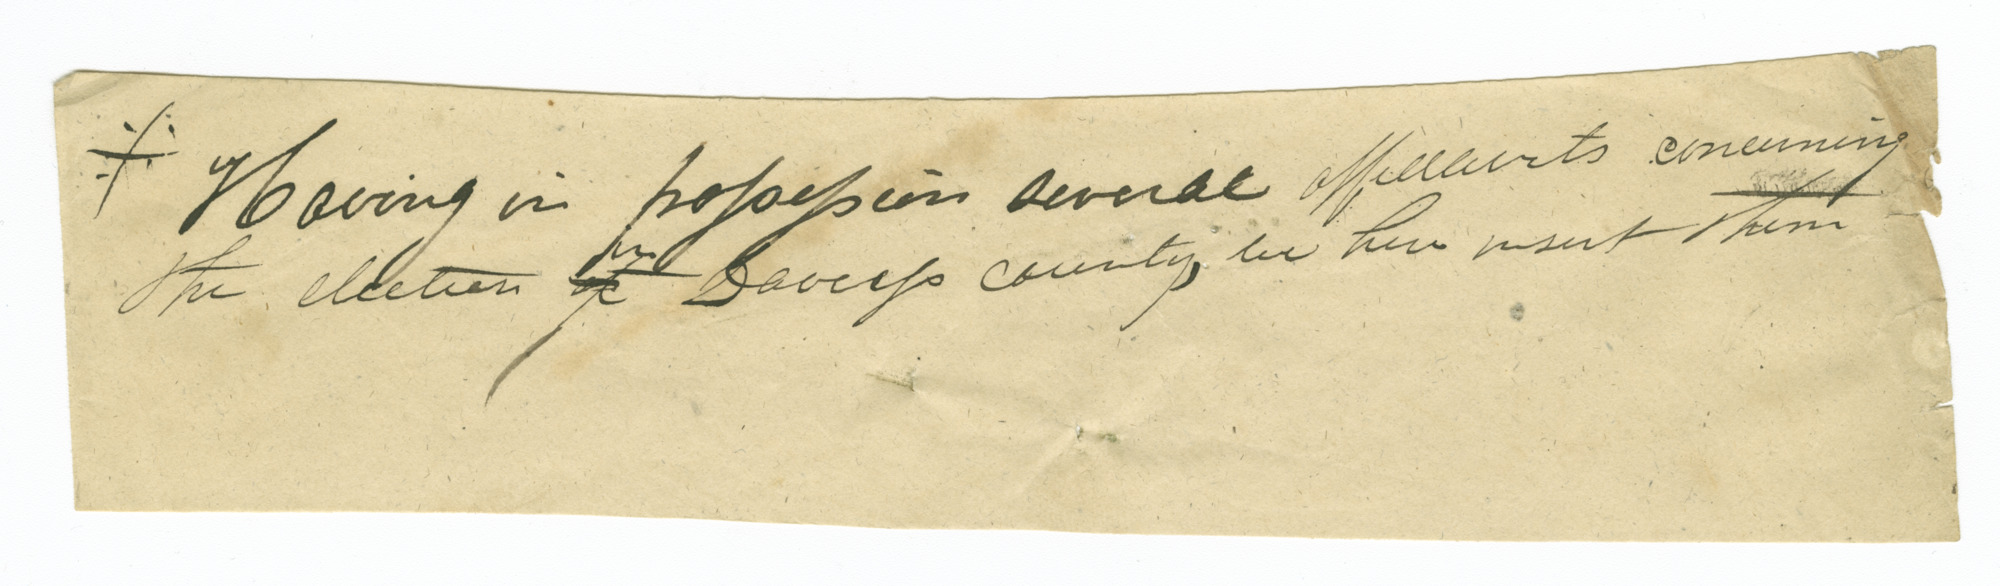 Having in possession several affidavits concerning
the election in Daviess county, we here insert them